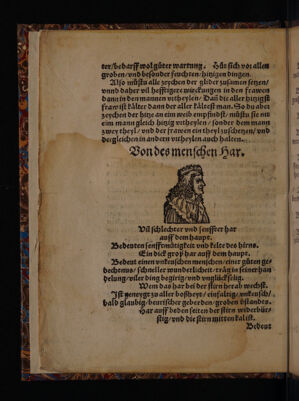 ter/ bedarff wol gůter wartung. Hüt sich vor allen
groben/ vnd besonder feuchten/ hitzigen dingen.
Also můstu alle zeychen der glider zusamen setzen/
vnnd daher vil hefftigere wirckungen in den frawen
dann in den mannen vrtheylen/ Dañ die aller hitzigst
fraw ist kälter dann der aller kältest man. So du aber
zeychen der hitze an eim weib empfindst/ můstu sie nit
eim mann gleich hitzig vrtheylen/ sonder dem mann
zwey theyl/ vnd der frawen ein theyl zuschetzen/ vnd
dergleichen in andern vrtheylen auch halten.
Von des menschen Har.
Vil schlechter vnd senffter har
auff dem haupt.
Bedeuten senfftmütigkeit vnd kelte des hirns.
Ein dick groß har auff dem haupt.
Bedeut einen vnkeuschen menschen/ einer gůten ge-
dechtnus/ schneller wunderlicheit/ träg in seiner han
delung/ viler ding begirig/ vnd vnglückselig.
Wem das har bei der stirn herab wechst.
Ist geneygt zů aller boßheyt/ einfaltig/ vnkeusch/
bald glaubig/ beurischer geberden/ groben verstandts.
Har auff beden seiten der stirn widerbür-
stig/ vnd die stirn mitten kal ist.
Bedeut